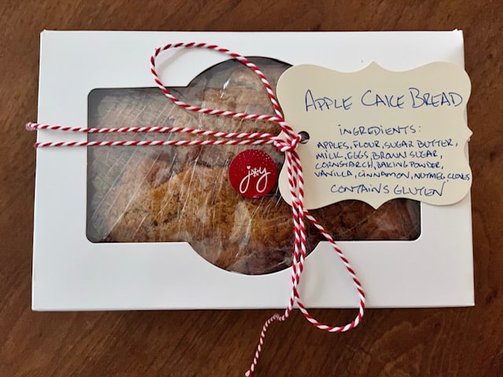 APPLE CAKE BREAD
INGREDIENTS:
APPLES, FLOUR, SUGAR, BUTTER,
MILK, EGGS, BROWN SUGAR,
CORNSTARCH, BAKING POWDER,
VANILLA, CINNAMON, NUTMEG, CLOVES
CONTAINS GLUTEN
joy